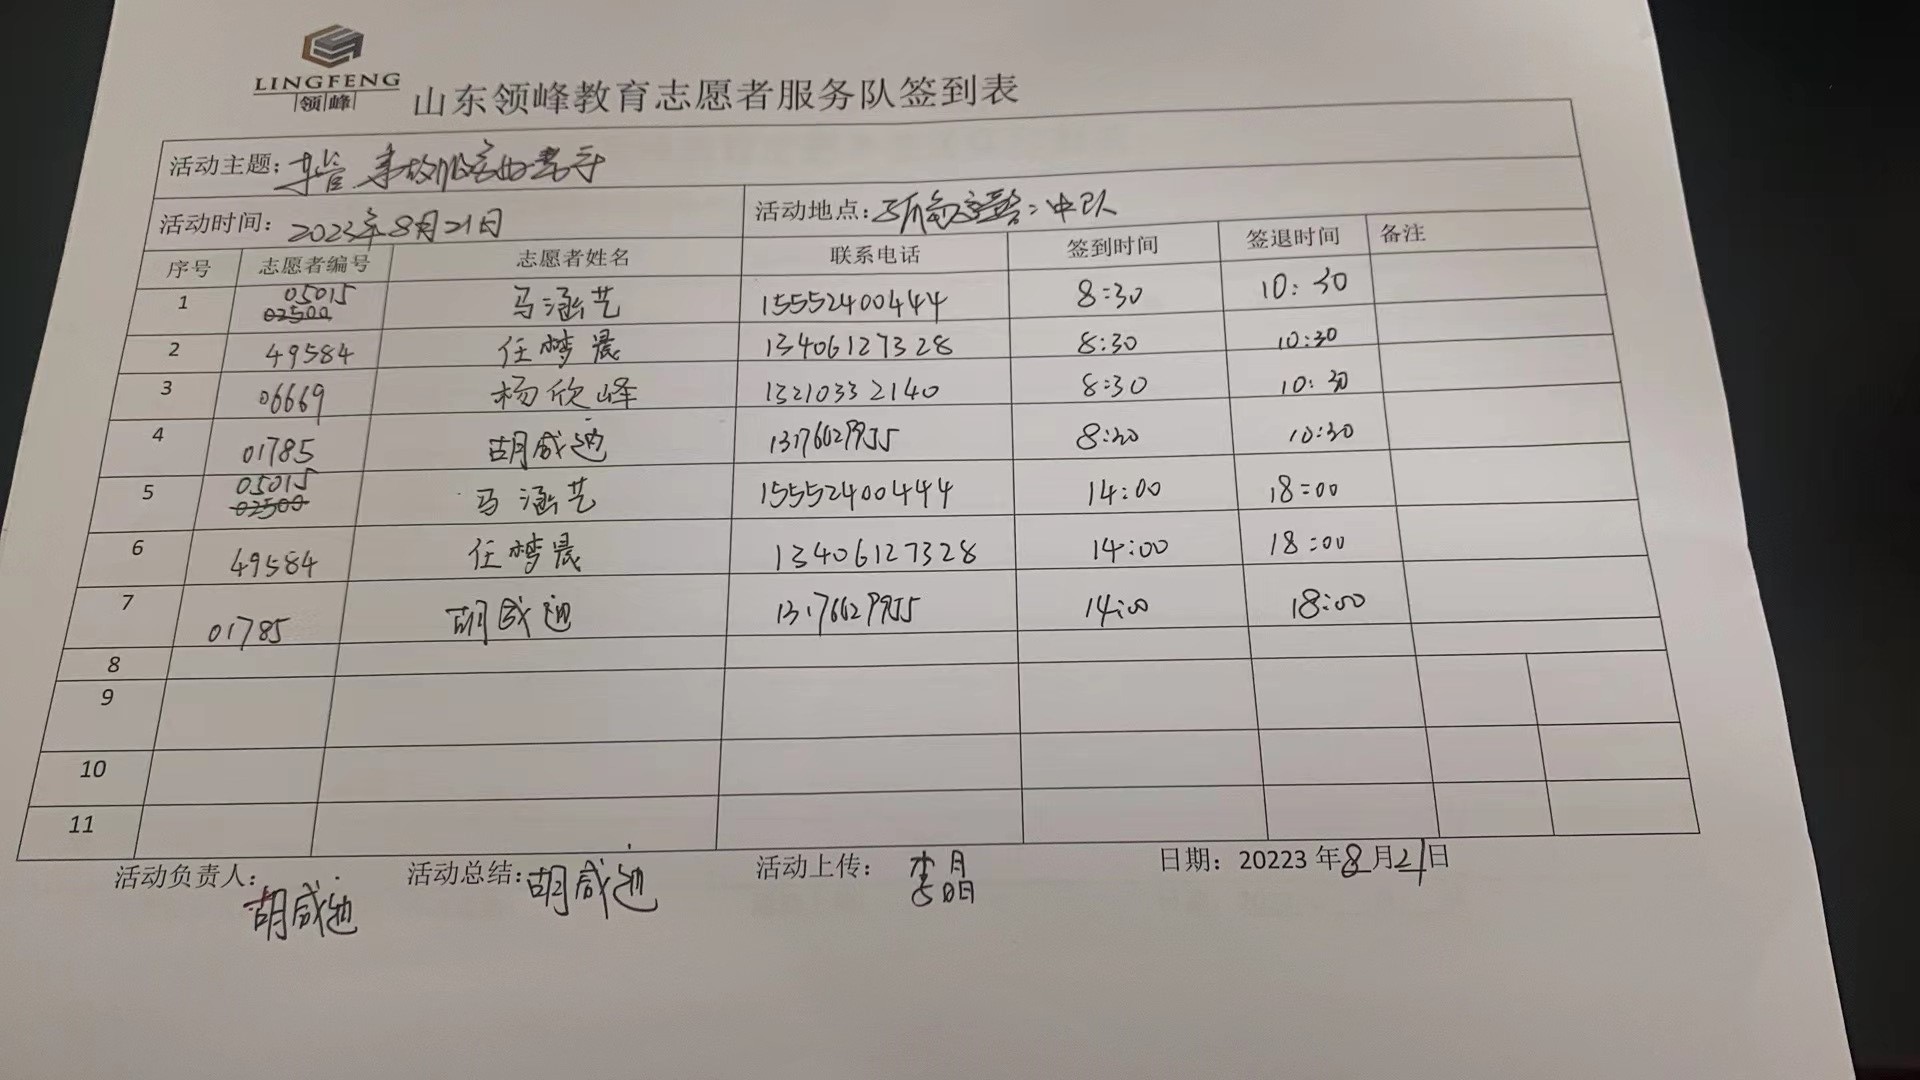 LINGFENG
领峰
山东领峰教育志愿者服务队签到表
活动主题: 车管
活动时间: 2023年8月21日 活动地点: 二中队
序号 志愿者编号 志愿者姓名 联系电话 签到时间 签退时间 备注
1 05015 02500 马涵艺 15552400444 8:30 10:30
2 49584 任梦晨 13406127328 8:30 10:30
3 06669 杨欣峰 13210332140 8:30 10:30
4 01785 胡威迪 13176629955 8:30 10:30
5 05015 02500 马涵艺 15552400444 14:00 18:00
6 49584 任梦晨 13406127328 14:00 18:00
7 01785 胡威迪 13176629955 14:00 18:00
8
9
10
11
活动负责人: 胡威迪 活动总结: 胡威迪 活动上传: 李明 日期: 20223 年 8 月 21 日